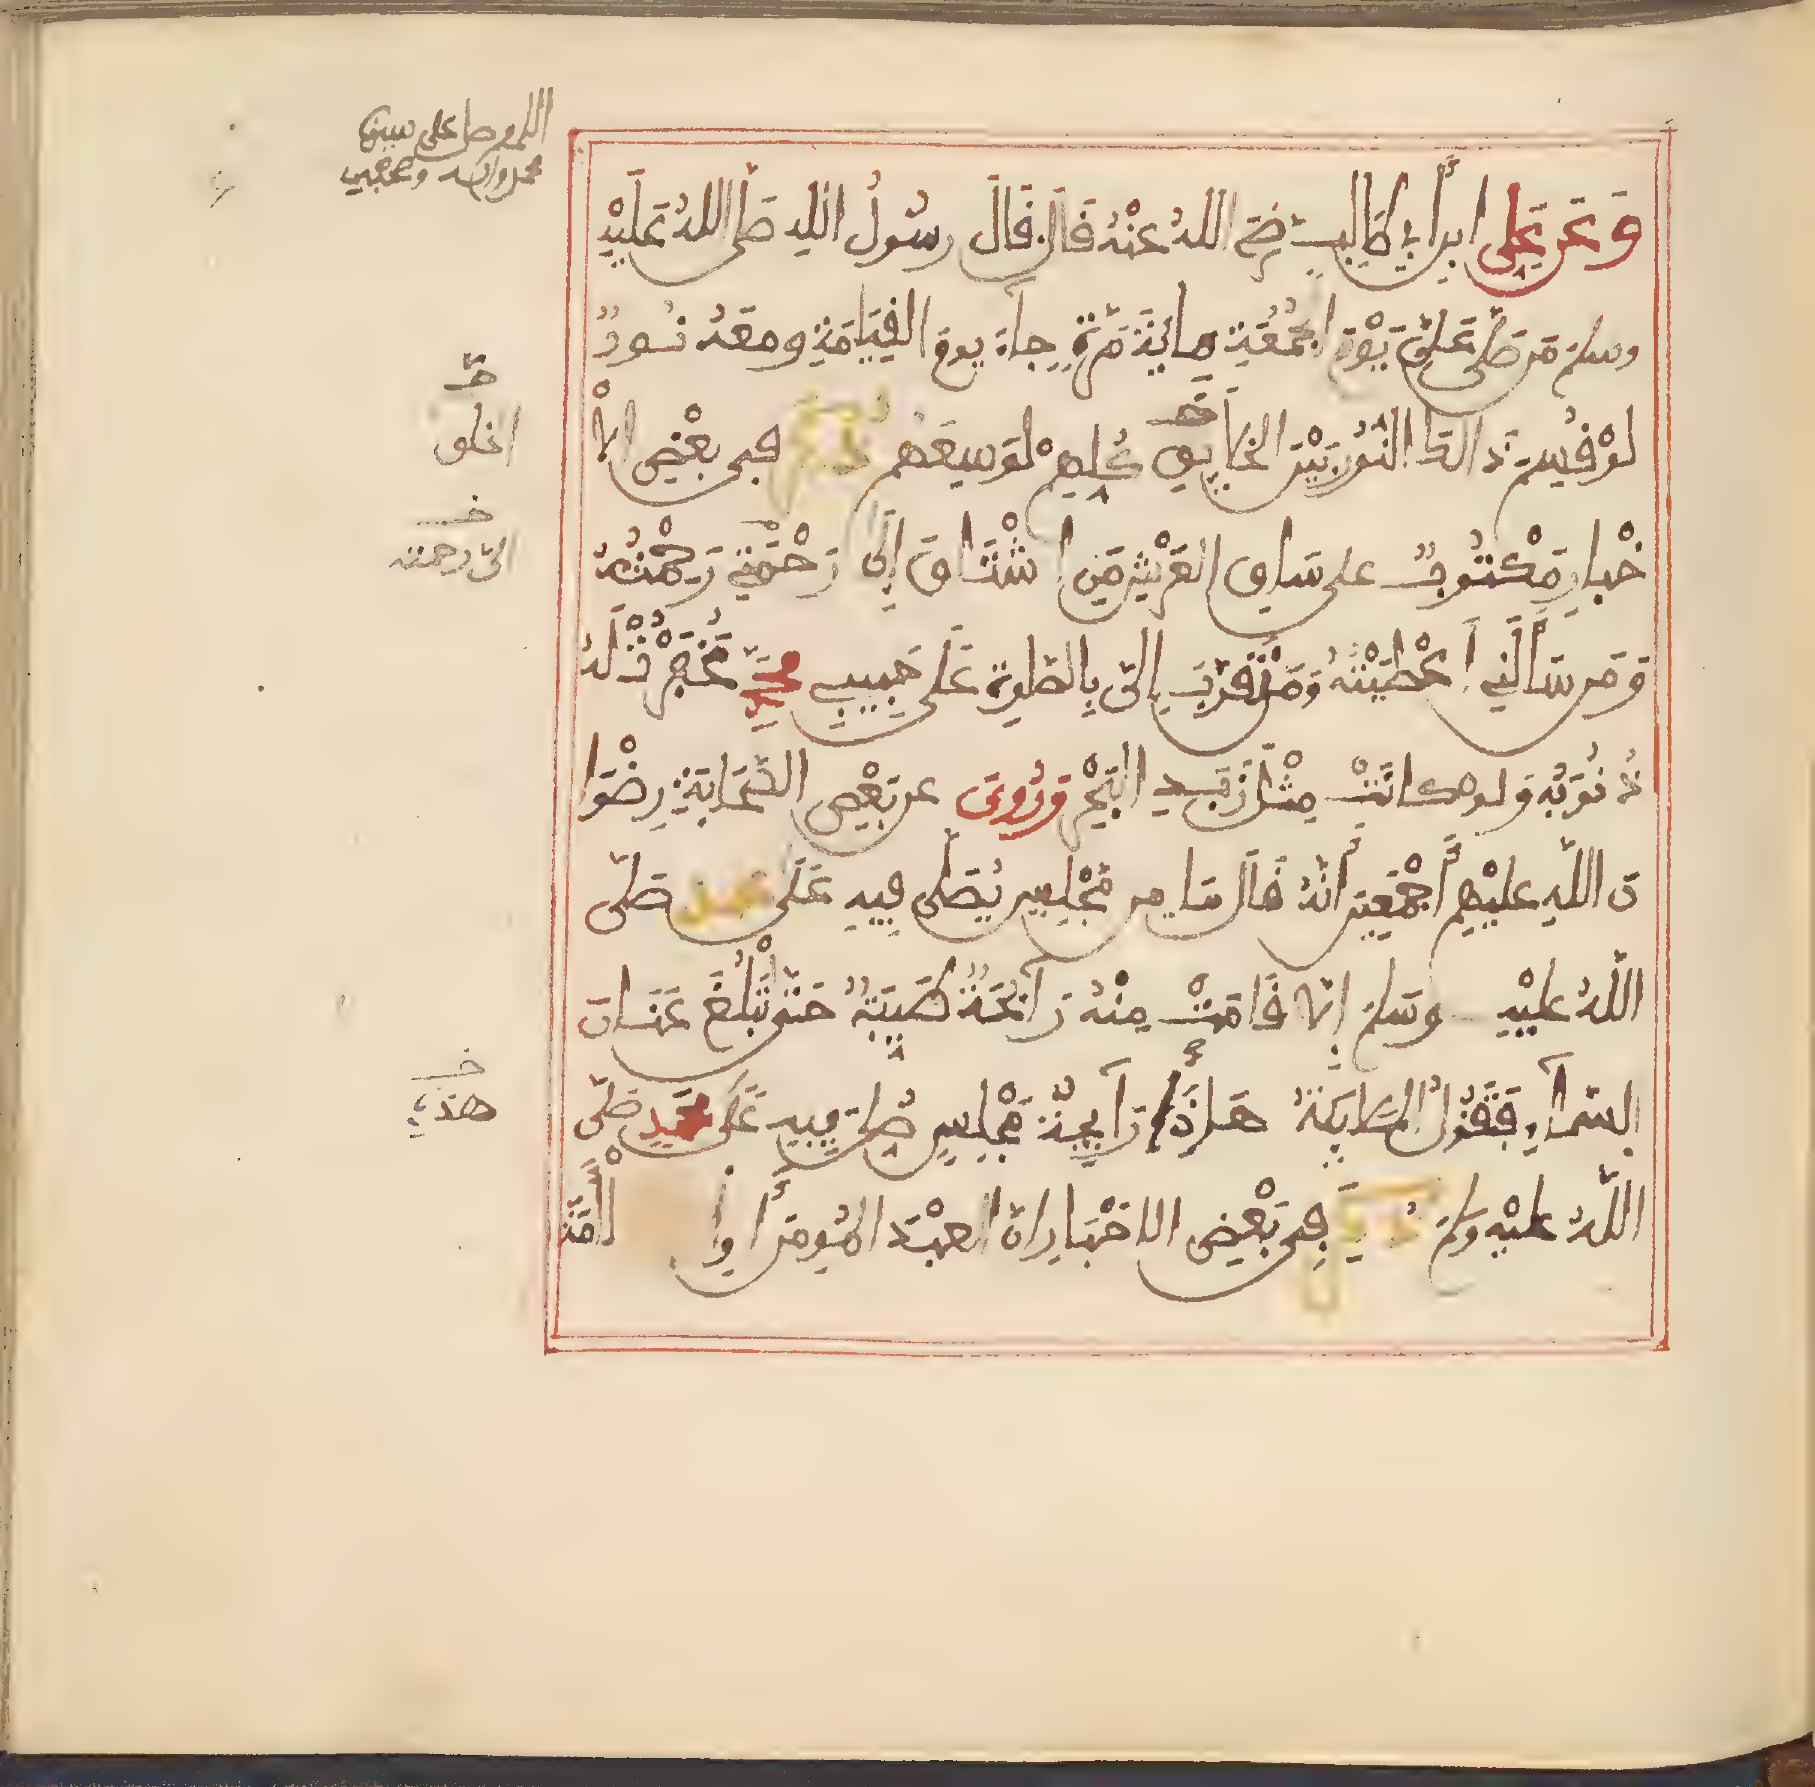 اللهم صل على سيدنا
محمد واله وصحبه
وَعَن عَلِي ابن أَبي طَالِب رَضِيَ اللهُ عَنْهُ قَالَ قَالَ رسُولُ اللهِ صَلَّى اللهُ عَلَيْهِ
وسلم مَن صَلَّى عَلَيَّ يَوْمَ الجُمُعَةِ مِائَةَ مَرَّةٍ جاءَ يومَ القِيَامَةِ ومعَهُ نُورٌ
لَوْ قُسِمَ ذَالكَ النُّورُ بَيْنَ الخَلَايِقِ كُلِّهِمْ لَوَسِعَهُمْ ذُكِرَ فِي بَعْضِ الأَ
خ
الخلق
خْبارِ مَكْتُوبٌ على سَاقِ العَرْشِ مَنِ اشْتَاقَ إِلَى رَحْمَتِي رَحِمْتُهُ
خ
الى رحمته
وَمَن سَأَلَنِي أَعْطَيْتُهُ وَمَنْ تَقَرَّبَ إِلَيَّ بِالصَّلوةِ عَلَى حَبِيبِي مُحَمَّدٍ غَفَرْتُ لَهُ
ذُنُوبَهُ وَلَو كَانَتْ مِثْلَ زَبَدِ البَحْرِ وَرُوِيَ عن بَعْضِ الصَّحَابَةِ رِضْوَا
نَ اللَّهِ عليْهِمْ أَجْمَعِينَ أَنَّهُ قَالَ مَا مِن مَجْلِسٍ يُصَلَّى فِيهِ عَلَى محمد صَلَّى
اللَّهُ عليْهِ وسَلم إلَّا قَامَتْ مِنْهُ رَائحَةٌ طَيِّبَةٌ حَتَّى تَبْلُغَ عَنَانَ
السَّمَآءِ فَتَقُولُ المَلَايِكَةُ هَاذِهِ رَآيِحَةُ مَجْلِسٍ صُلِّيَ فِيهِ عَلَى مُحَمَّدٍ صَلَّى
خ
هذا
اللَّهُ عليْهِ وسلم ذُكِرَ فِي بَعْضِ الاخْبَارِ انَّ العبْدَ المُومِنَ أَوِ الْأَمَةَ